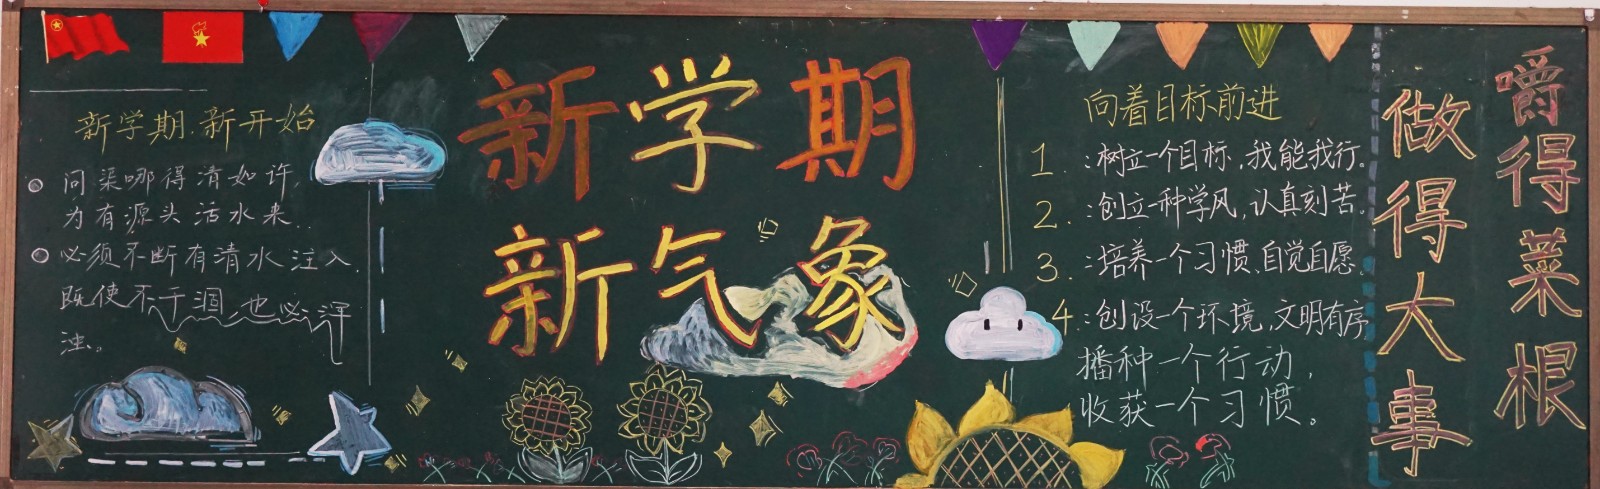 新学期.新开始
问渠哪得清如许,
为有源头活水来..
必须不断有清水注入,
既使不干涸,也必浑
浊。
新学期
新气象
向着目标前进
1.:树立一个目标,我能我行。
2.:创立一种学风,认真刻苦.
3.:培养一个习惯、自觉自愿.
4.:创设一个环境,文明有序
播种一个行动,
收获一个习惯。
嚼得菜根
做得大事